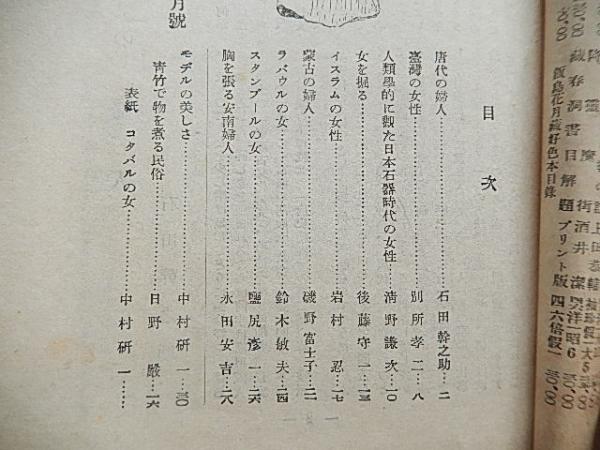 目次
唐代の婦人……………石田幹之助…二
臺灣の女性……………別所孝二…八
人類學的に觀た日本石器時代の女性……清野謙次…一〇
女を掘る……………後藤守一…一三
イスラムの女性……………岩村忍…一七
蒙古の婦人……………磯野富士子…二一
ラバウルの女……………鈴木敏夫…二四
スタンブールの女……………鹽尻彦一…二六
胸を張る安南婦人……………永田安吉…二八
モデルの美しさ……………中村研一…三〇
靑竹で物を煮る民俗……………日野巖…一六
表紙 コタバルの女……………中村研一……
月號
飯島花月藏好色本目錄
藏春洞書目解題
プリント版
四六倍假一